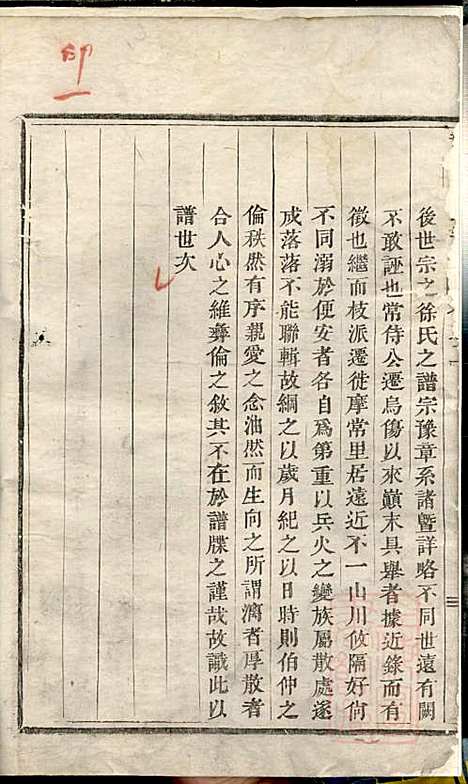 後世宗之徐氏之譜宗豫章系諸暨詳略不同世遠有闕
不敢誣也常侍公遷烏傷以來巔末具舉者據近錄而有
徵也繼而枝派遷徙摩常里居遠近不一山川攸隔好尙
不同溺於便安者各自爲第重以兵火之變族屬散處遂
成落落不能聯輯故綱之以歲月紀之以日時則伯仲之
倫秩然有序親愛之念油然而生向之所謂漓者厚散者
合人心之維彝倫之敘其不在於譜牒之謹哉故識此以
譜世次
印一